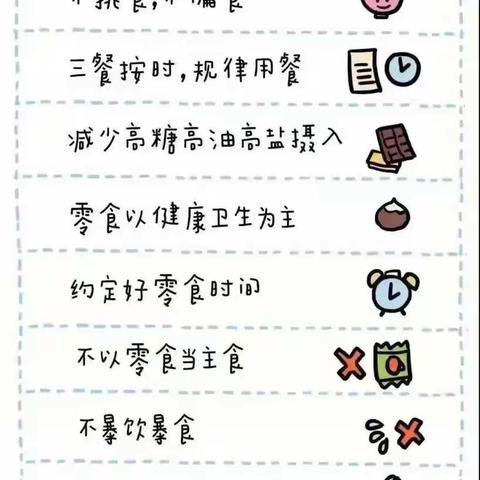 不挑食,不偏食
三餐按时,规律用餐
减少高糖高油高盐摄入
零食以健康卫生为主
约定好零食时间
不以零食当主食
不暴饮暴食